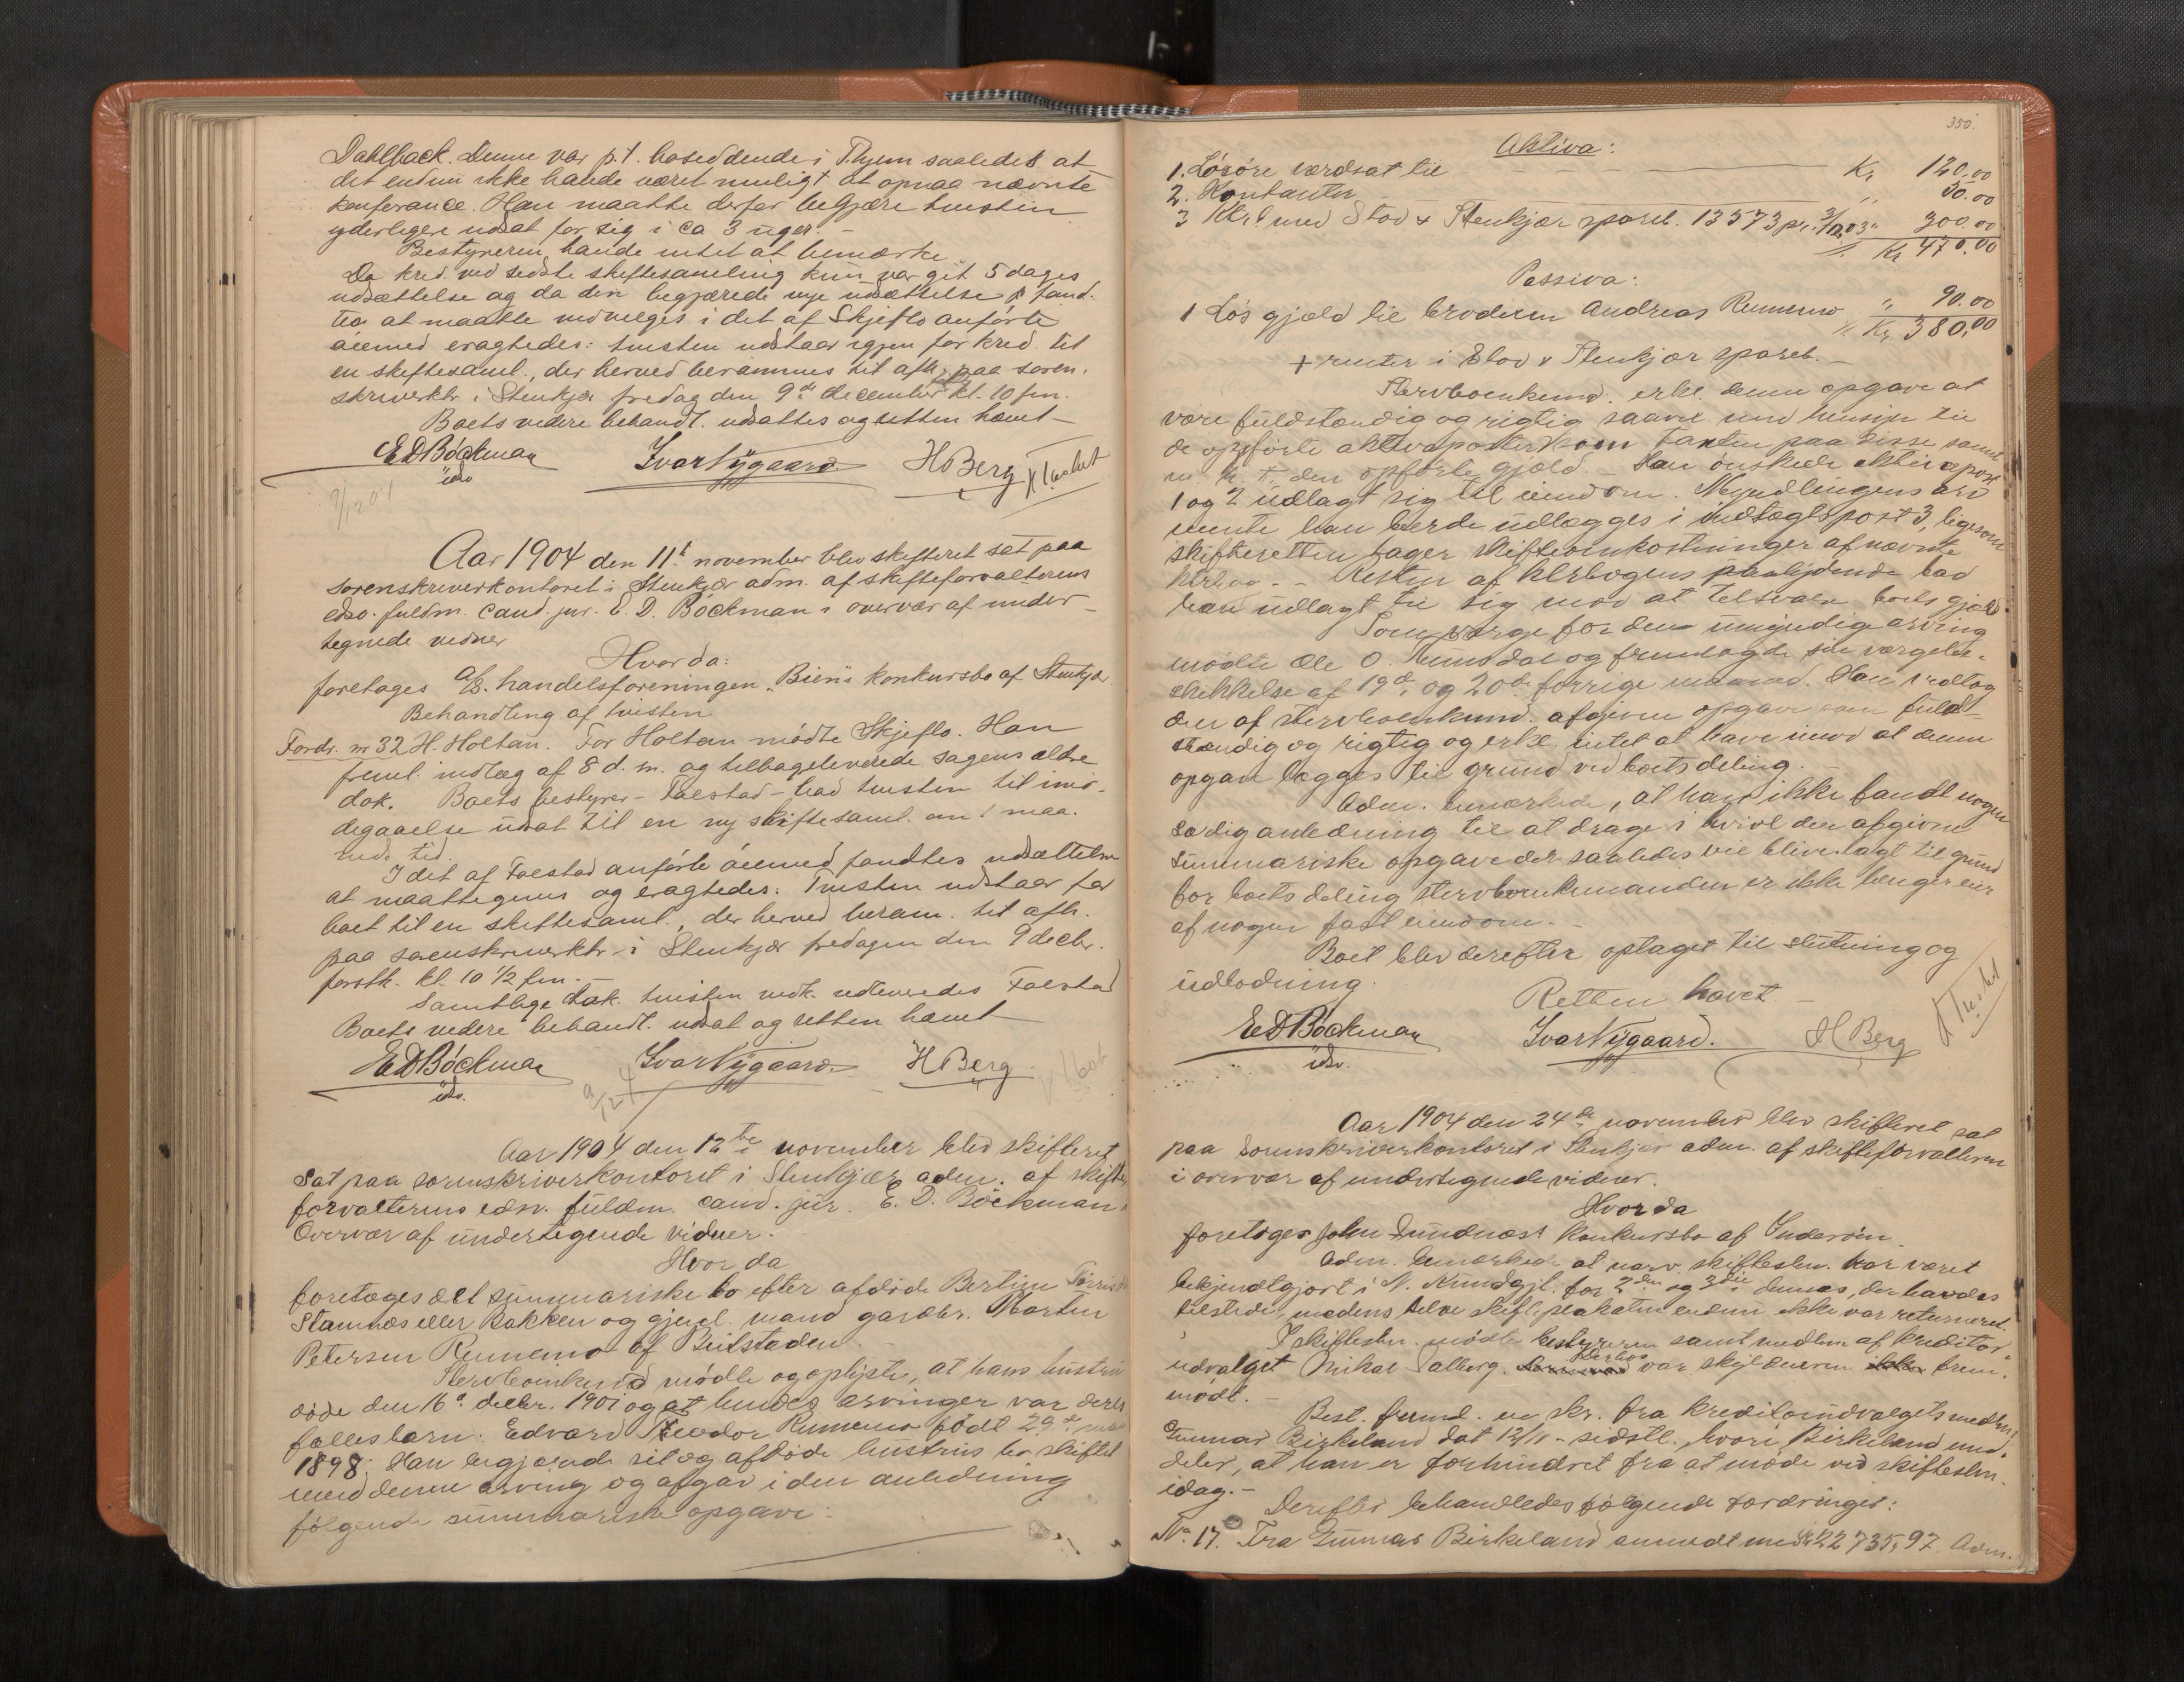 Dahlback. Denne var p.t. bosiddende i Thjem saaledes at
det endnu ikke havde været muligt at opnaa nævnte
konferance. Han maatte derfor begjære tvisten
yderligere udsat for sig i ca 3 uger. –
Bestyreren havde intet at bemærke
Da kred. ved sidste skiftesamling kun var git 5 dages
udsættelse og da den begjærede nye udsættelse fand-
tes at maatte indvilges i det af Skjeflo anførte
allemed eragtedes: tvisten udstaar igjen for kred. til
en skiftesaml., der herved berammes til afh. paa soren-
skriverktr. i Stenkjær fredag den 9de december kl. 10 fm.
Boets videre behandl. udsattes og retten hævet –
E D Böckman Ivar Nygaard H Berg
edsv
Aar 1904 den 11t november blev skifteret sat paa
sorenskriverkontoret i Stenkjær adm. af skifteforvalterens
edsv. fuldm. cand. jur. E. D. Böckman i overvær af under-
tegnede vidner
Hvorda:
foretages A/S. handelsforeningen "Bien"s konkursbo af Stenkjær.
Behandling af tvisten
Fordr. nr 32 H. Holtan. For Holtan mødte Skjeflo. Han
freml. indlæg af 8 d. m. og tilbageleverede sagens ældre
dok. Boets bestyrer – Følstad – bad tvisten til imø-
degaaelse udsat til en ny skiftesaml. om 1 maa-
neds tid.
I det af Følstad anførte allemed fandtes udsættelsen
at maatte gives og eragtedes: Tvisten udstaar for
boet til en skiftesaml., der herved beram. til afh.
paa sorenskriverktr. i Stenkjær fredagen den 9 decbr.
førstk. kl. 10 1/2 fm. –
Samtlige dok. tvisten vedk. udleveredes Følstad
Boets videre behandl. udsat og retten hævet
E D Böckman Ivar Nygaard H Berg
edsv.
Aar 1904 den 12te november blev skifteret
sat paa sorenskriverkontoret i Stenkjær adm. af skifte-
forvalterens edsv. fuldm. cand. jur. E. D. Böckman i
Overvær af undertegnede vidner.
Hvor da
foretages det summariske bo efter afdøde Bertine
Stamnæs eller Bakken og gjenl. mand gaardbr. Martin
Petersen Rennemo af Beitstaden.
Stervboenkemd mødte og oplyste, at hans hustru
døde den 16de decbr. 1901 og at hendes arvinger var deres
fællesbarn: Edvard Teodor Rennemo født 29de
1898. Han begjærede sit og afdøde hustrus bo skiftet
med denne arving og afgav i den anledning
følgende summariske opgave:
350.
Aktiva:
1. Løsøre værdsat til Kr. 120,00
2. Kontanter " 50.00
3 Kb. med Stod & Stenkjær spareb. 13573 pr. 3/10.03 " 300.00
Kr 470.00
Passiva:
1 Løs gjæld til broderen Andreas Rennemo " 90.00
Kr. 380,00
+ renter i Stod & Stenkjær spareb. –
Stervboenkemd. erkl. denne opgave at
være fuldstændig og rigtig saavel med hensyn til
de opførte aktivaposter som taxten paa disse samt
m. h. t. den opførte gjæld. – Han ønskede aktivapost
1 og 2 udlagt sig til eiendom. Myndlingens arv
mente han burde udlægges i indtægtspost 3, ligesom
skifteretten tager skifteomkostninger af nævnte
– Resten af klrbogens paalydende bad
han udlagt til sig mod at tilsvare boets gjæld.
Som værge for den umyndige arving
mødte Ole O. og fremlagde sin værgebe-
skikkelse af 19de og 20de forrige maaned. Han vedtog
den af stervboenkemd. afgivne opgave som fuld-
stændig og rigtig og erkl. intet at have imod at denne
opgave lægges til grund ved boets deling. –
Adm. bemærkede, at han ikke fandt nogen
særdig anledning til at drage i tvivl den afgivne
summariske opgave der saaledes vil blive lagt til grund
for boets deling. Stervboenkemanden er ikke længer eier
af nogen fast eiendom. –
Boet blev derefter optaget til slutning og
udlodning. Retten hævet –
E D Böckman Ivar Nygaard. H Berg
edsv.
Aar 1904 den 24de november blev skifteret sat
paa Sorenskriverkontoret i Stenkjær adm. af skifteforvalteren
i overvær af undertegnede vidner.
Hvor da
foretoges John Sundnæs's konkursbo af Inderøen.
Adm. bemærkede at nærv. skiftesln. har været
bekjendtgjort i N. Kundgjl. for 2den og 3die dennes, der havdes
tilstede, medens selve skifteplakaten endnu ikke var returneret.
I skiftesln. mødte bestyreren samt medlem af kreditor-
udvalget Mikal Salberg. Derhos var skyldneren frem-
mødt. –
Best. freml. en skr. fra kreditorudvalgets medlem
Gunnar Birkeland dat 12/11 – sidstl. hvori Birkeland med-
deler, at han er forhindret fra at møde ved skiftesln.
idag. –
Derefter behandledes følgende fordringer:
No. 17. Fra Gunnar Birkeland anmeldt med kr. 22735,97 Adm.